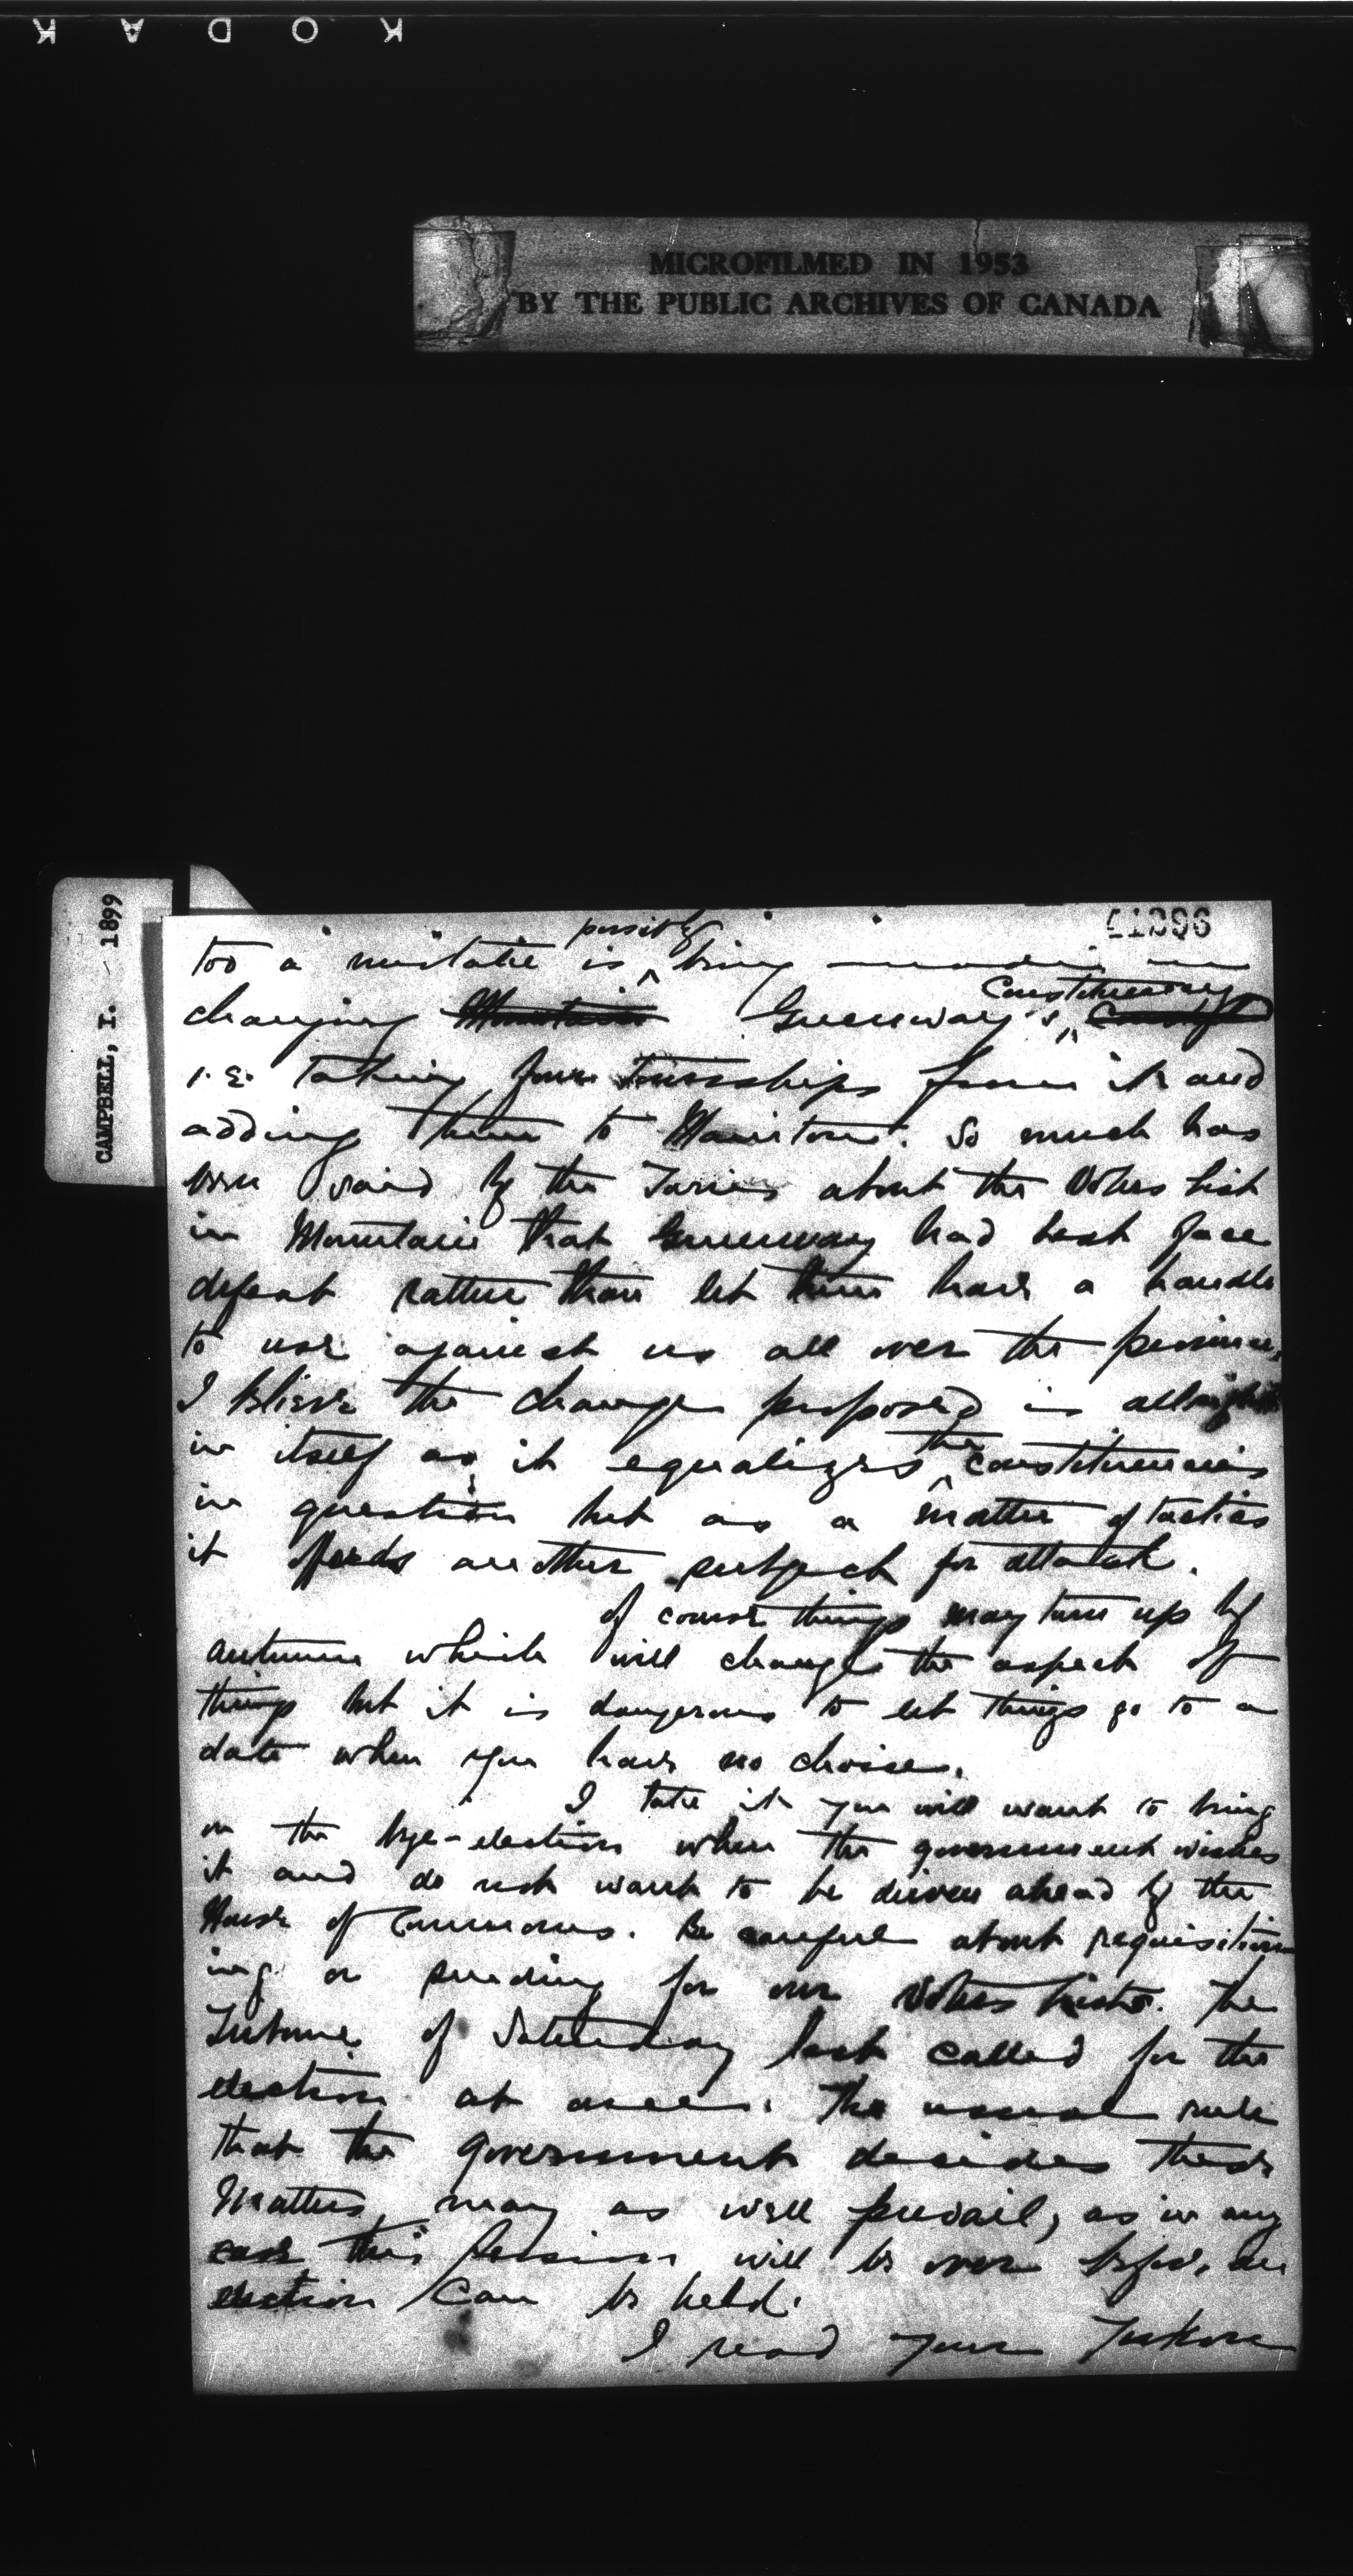 KODAK
MICROFILMED IN 1953
BY THE PUBLIC ARCHIVES OF CANADA
CAMPBELL, I. - 1899
41296
possibly
too a mistake is being made in
Constituency
changing Mountain Greenway's
i.e. taking four Townships from it and
adding them to Manitou. So much has
been said by the Tories about the Voters list
in Mountain that Greenway had best face
defeat rather than let them have a handle
to use against us all over the province.
I believe the change proposed is allright
the
in itself as it equalizes constituencies
in question but as a matter of tactics
it affords another subject for attack.
Of course things may turn up by
autumn which will change the aspect of
things but it is dangerous to let things go to a
date when you have no choice.
I take it you will want to bring
on the bye-election when the government wishes
it and do not want to be driven ahead by the
House of Commons. Be careful about requisition
ing or sending for our Voters lists. The
Tribune of Saturday last called for the
election at once. The usual rule
that the government decides these
matters may as well prevail, as in any
case this session will be over before an
election can be held.
I read your Yukon